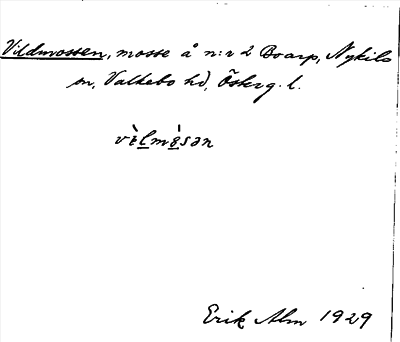 Vildmossen, mosse å n:r 2 Boarp, Nykils
sn, Valkebo hd, Österg. l.
vìlmòsən
Erik Alm 1929